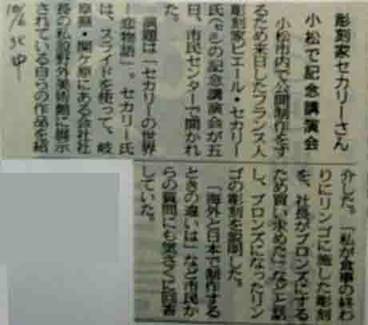 彫刻家セカリーさん
小松で記念講演会
小松市内で公開制作をす
るため来日したフランス人
彫刻家ピエール・セカリー
氏の記念講演会が五
日、市民センターで開かれ
た。
演題は「セカリーの世界
―恋物語」。セカリー氏
は、スライドを使って、岐
阜県・関ケ原にある会社社
長の私設野外美術館に展示
されている自らの作品を紹
介した。「私が食事の終わ
りにリンゴに施した彫刻
を、社長がブロンズにする
ため買い求めた」などと話
し、ブロンズになったリン
ゴの彫刻を説明した。
「海外と日本で制作する
ときの違いは」など市民か
らの質問にも気さくに回答
していた。